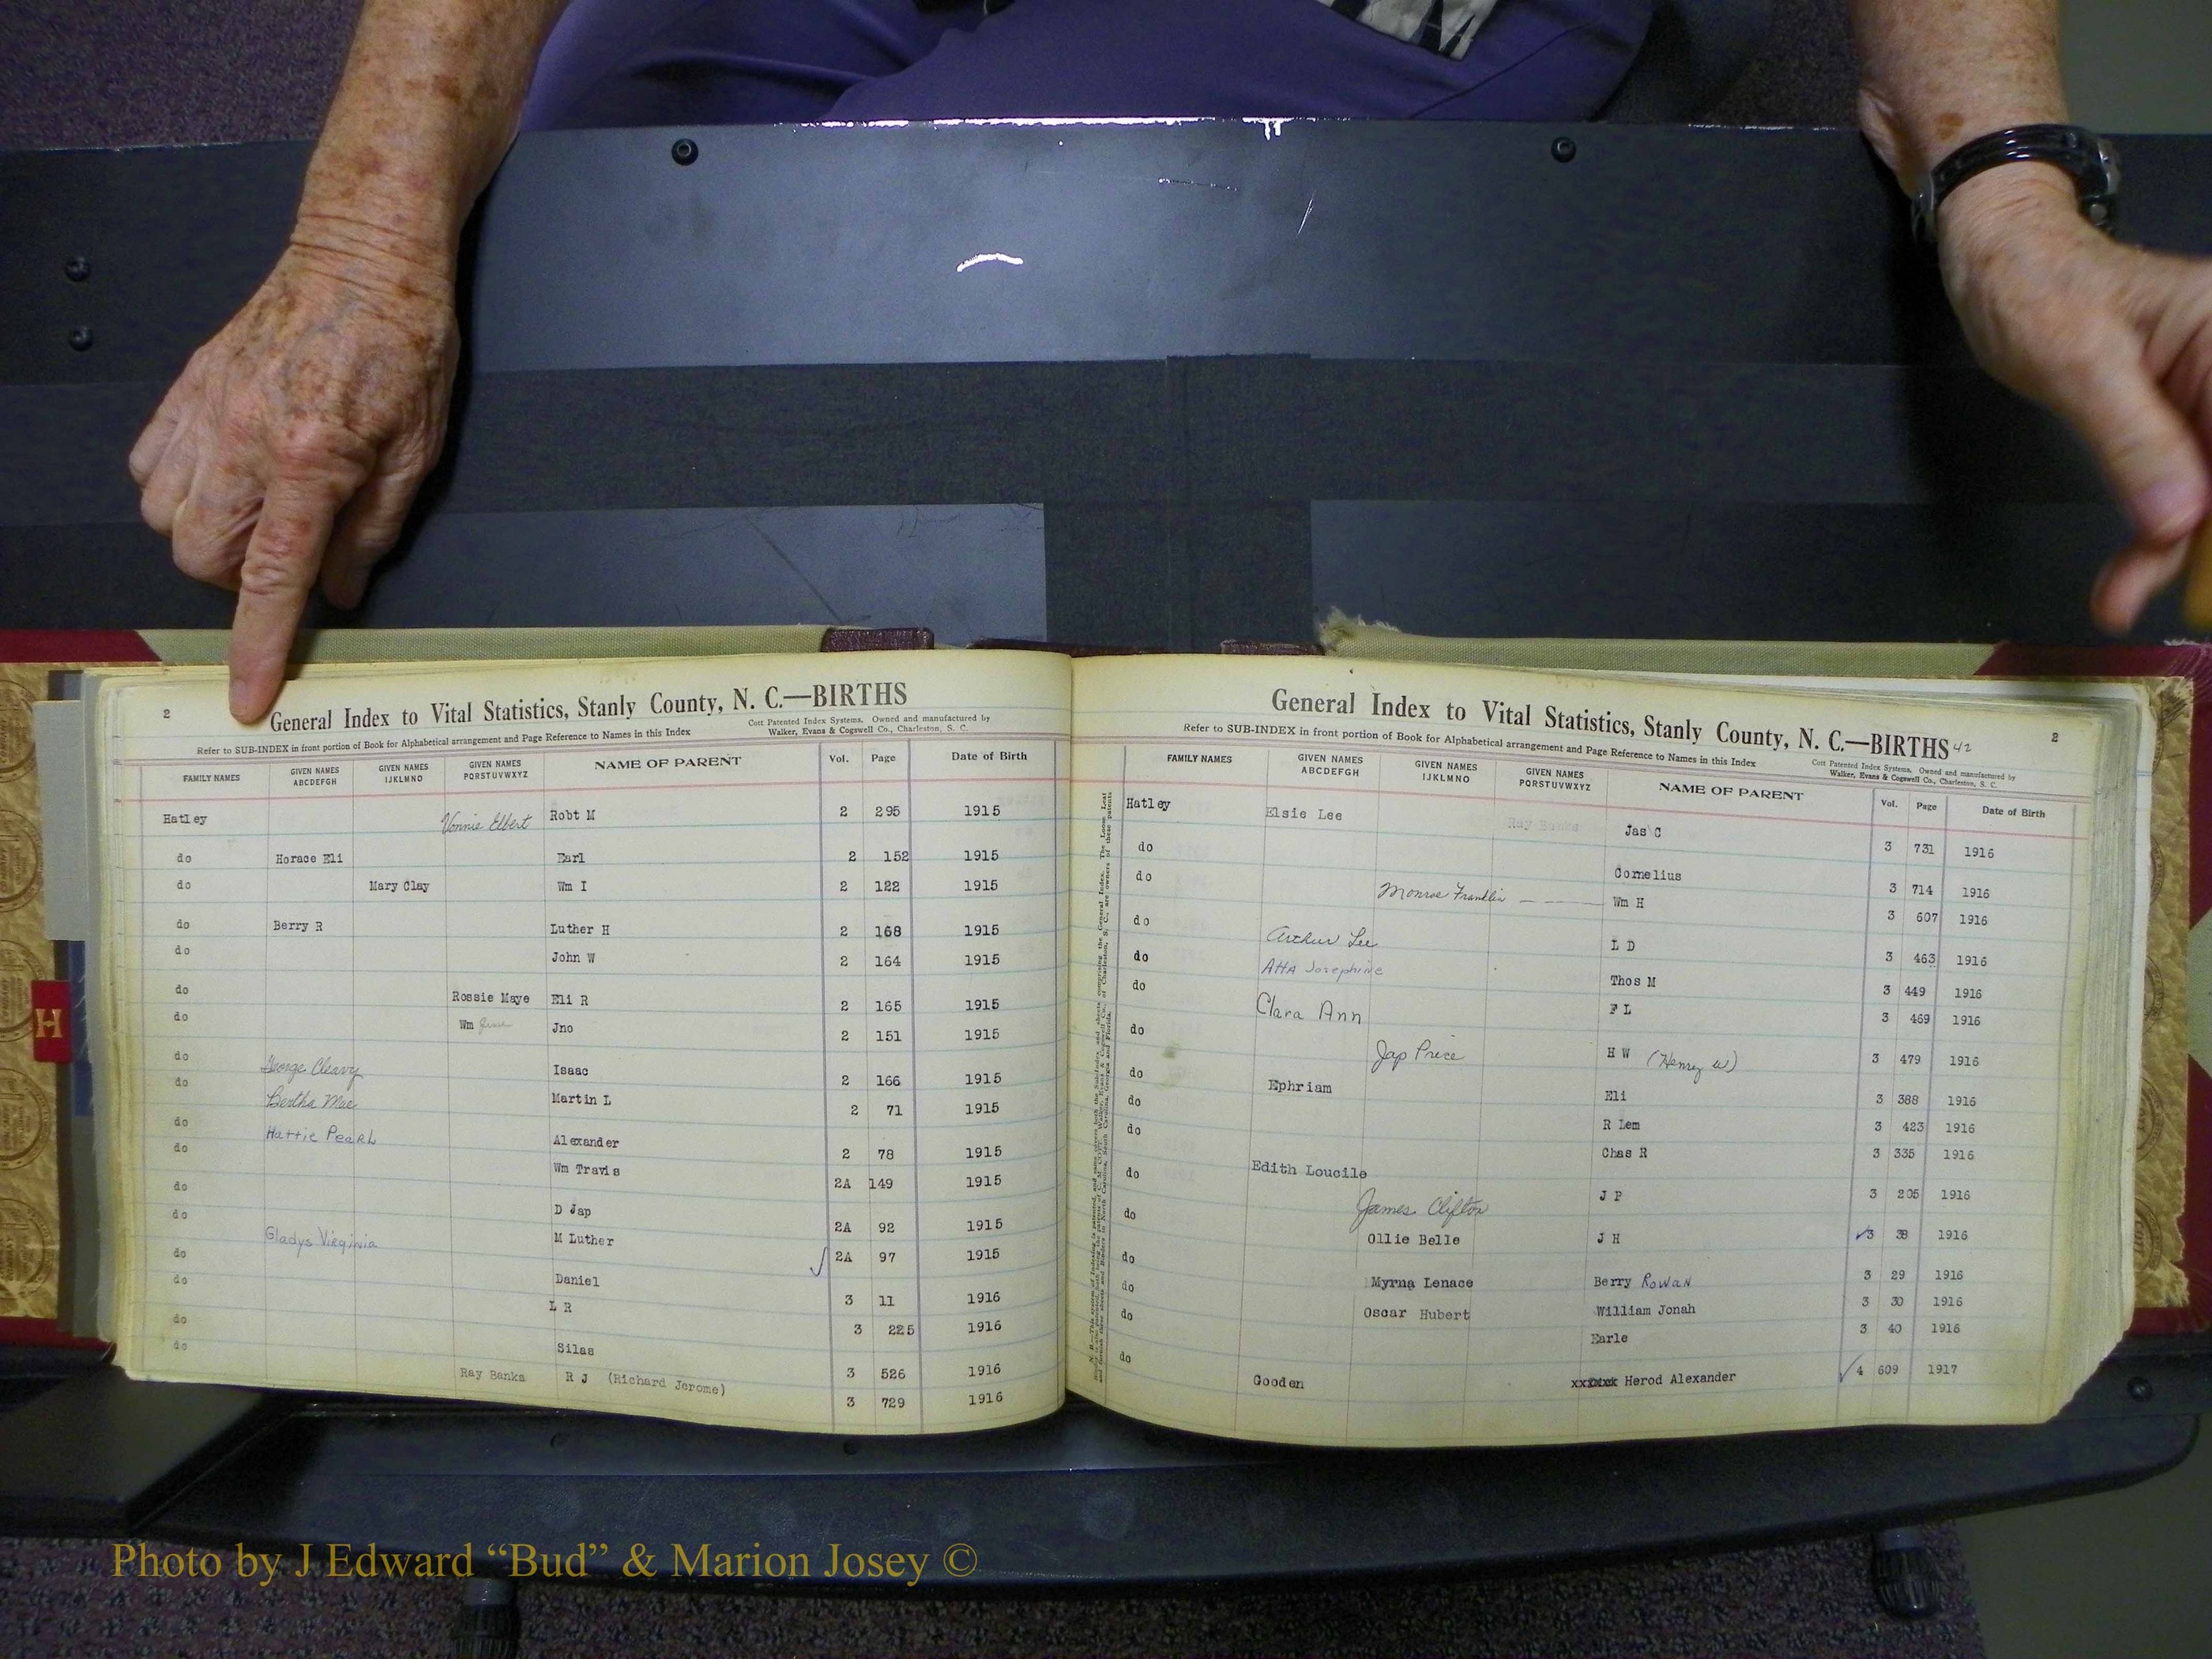 2
General Index to Vital Statistics, Stanly County, N. C.—BIRTHS
Refer to SUB-INDEX in front portion of Book for Alphabetical arrangement and Page Reference to Names in this Index
Cott Patented Index Systems. Owned and manufactured by
Walker, Evans & Cogswell Co., Charleston, S. C.
FAMILY NAMES GIVEN NAMES ABCDEFGH GIVEN NAMES IJKLMNO GIVEN NAMES PQRSTUVWXYZ NAME OF PARENT Vol. Page Date of Birth
Hatley Vonnie Elbert Robt M 2 295 1915
do Horace Eli Earl 2 152 1915
do Mary Clay Wm I 2 122 1915
do Berry R Luther H 2 168 1915
do John W 2 164 1915
do Rossie Maye Eli R 2 165 1915
do Wm Jno 2 151 1915
do George Cleavy Isaac 2 166 1915
do Bertha Mae Martin L 2 71 1915
do Hattie Pearl Alexander 2 78 1915
do Wm Travis 2A 149 1915
do D Jap 2A 92 1915
do Gladys Virginia M Luther 2A 97 1915
do Daniel 3 11 1916
do L R 3 225 1916
do Silas 3 526 1916
do Ray Banks R J (Richard Jerome) 3 729 1916
H
General Index to Vital Statistics, Stanly County, N. C.—BIRTHS 42
2
Refer to SUB-INDEX in front portion of Book for Alphabetical arrangement and Page Reference to Names in this Index
Cott Patented Index Systems. Owned and manufactured by
Walker, Evans & Cogswell Co., Charleston, S. C.
FAMILY NAMES GIVEN NAMES ABCDEFGH GIVEN NAMES IJKLMNO GIVEN NAMES PQRSTUVWXYZ NAME OF PARENT Vol. Page Date of Birth
Hatley Elsie Lee Jas C 3 731 1916
do Cornelius 3 714 1916
do Monroe Franklin Wm H 3 607 1916
do Arthur Lee L D 3 463 1916
do Atta Josephine Thos M 3 449 1916
do Clara Ann F L 3 469 1916
do Jap Price H W (Henry W) 3 479 1916
do Ephriam Eli 3 388 1916
do R Lem 3 423 1916
do Chas R 3 335 1916
do Edith Loucile J P 3 205 1916
do James Clifton J H 3 38 1916
Ollie Belle
do Myrna Lenace Berry Rowan 3 29 1916
do Oscar Hubert William Jonah 3 30 1916
do Earle 3 40 1916
do Gooden Herod Alexander 4 609 1917
Photo by J Edward “Bud” & Marion Josey ©